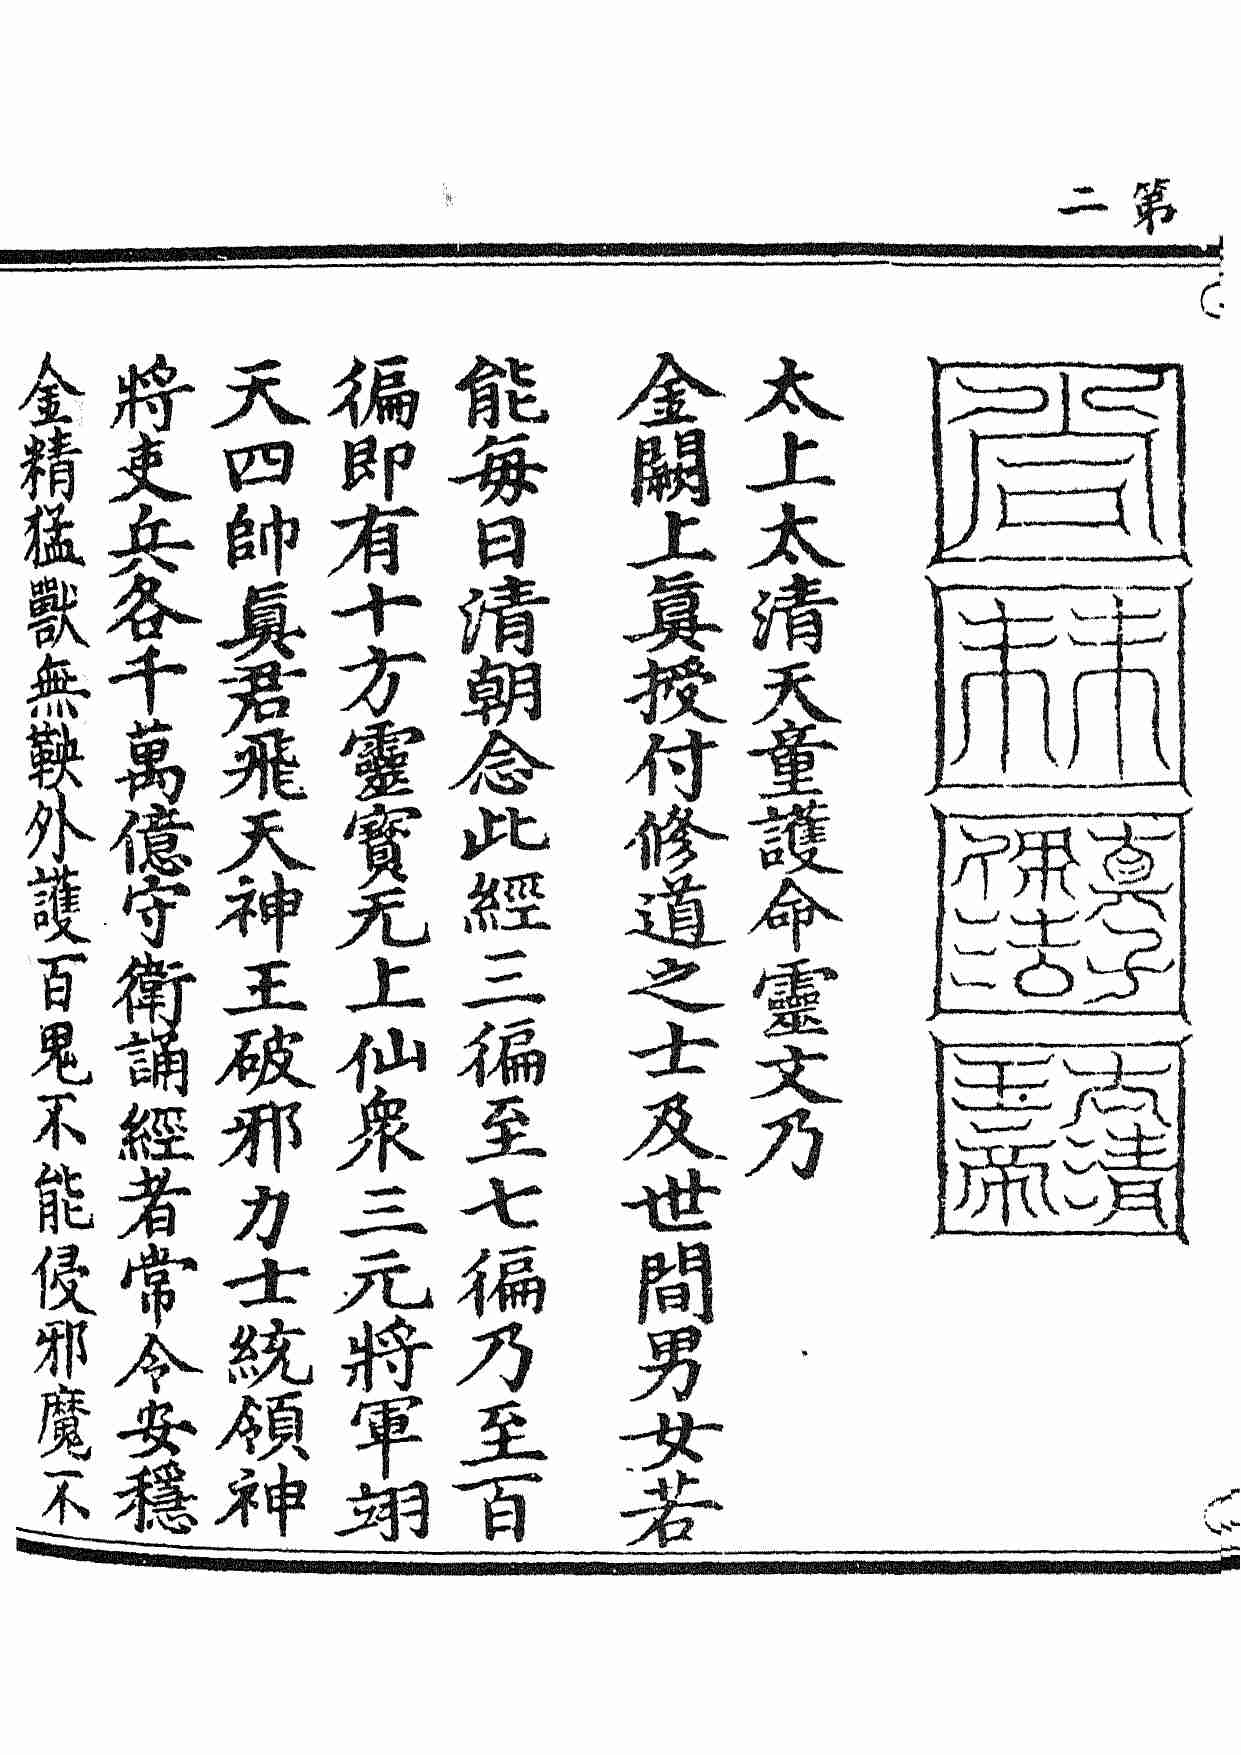 第二
太上太清天童護命靈文乃
金闕上眞授付修道之士及世間男女若
能每日清朝念此經三徧至七徧乃至百
徧即有十方靈寶无上仙衆三元將軍翊
天四帥眞君飛天神王破邪力士統領神
將吏兵各千萬億守衛誦經者常令安穩
金精猛獸無鞅外護百鬼不能侵邪魔不